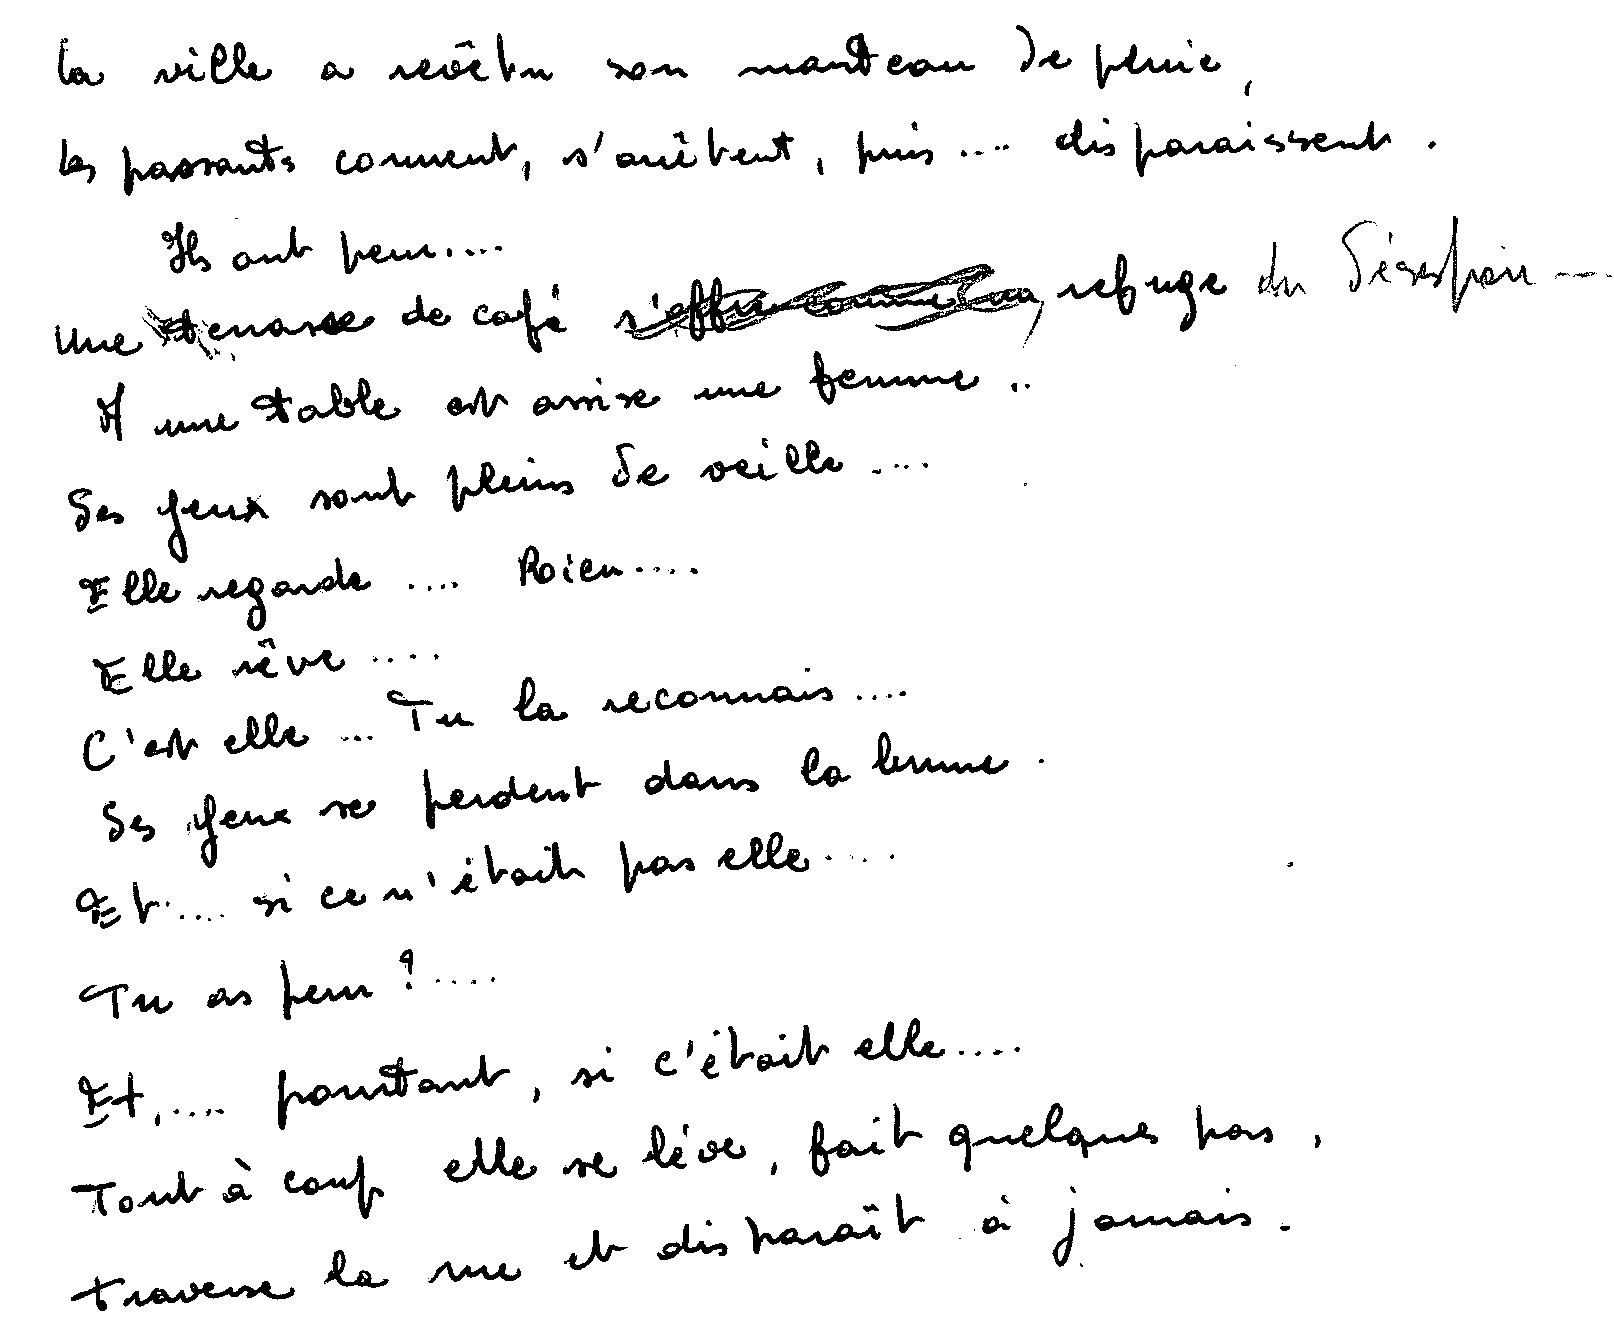 la ville a revêtu son manteau de pluie,
les passants courent, s'arrêtent, puis .... disparaissent.
Ils ont peur....
Une terrasse de café s'offre comme, refuge du désespoir ---
A une table est assise une femme ..
Ses yeux sont pleins de veille ....
Elle regarde .... Rien....
Elle rêve ....
C'est elle ... Tu la reconnais ....
Ses yeux se perdent dans la brume.
Et .... si ce n'était pas elle ....
Tu as peur ? ....
Et, .... pourtant, si c'était elle ....
Tout à coup elle se lève, fait quelques pas,
traverse la rue et disparaît à jamais.